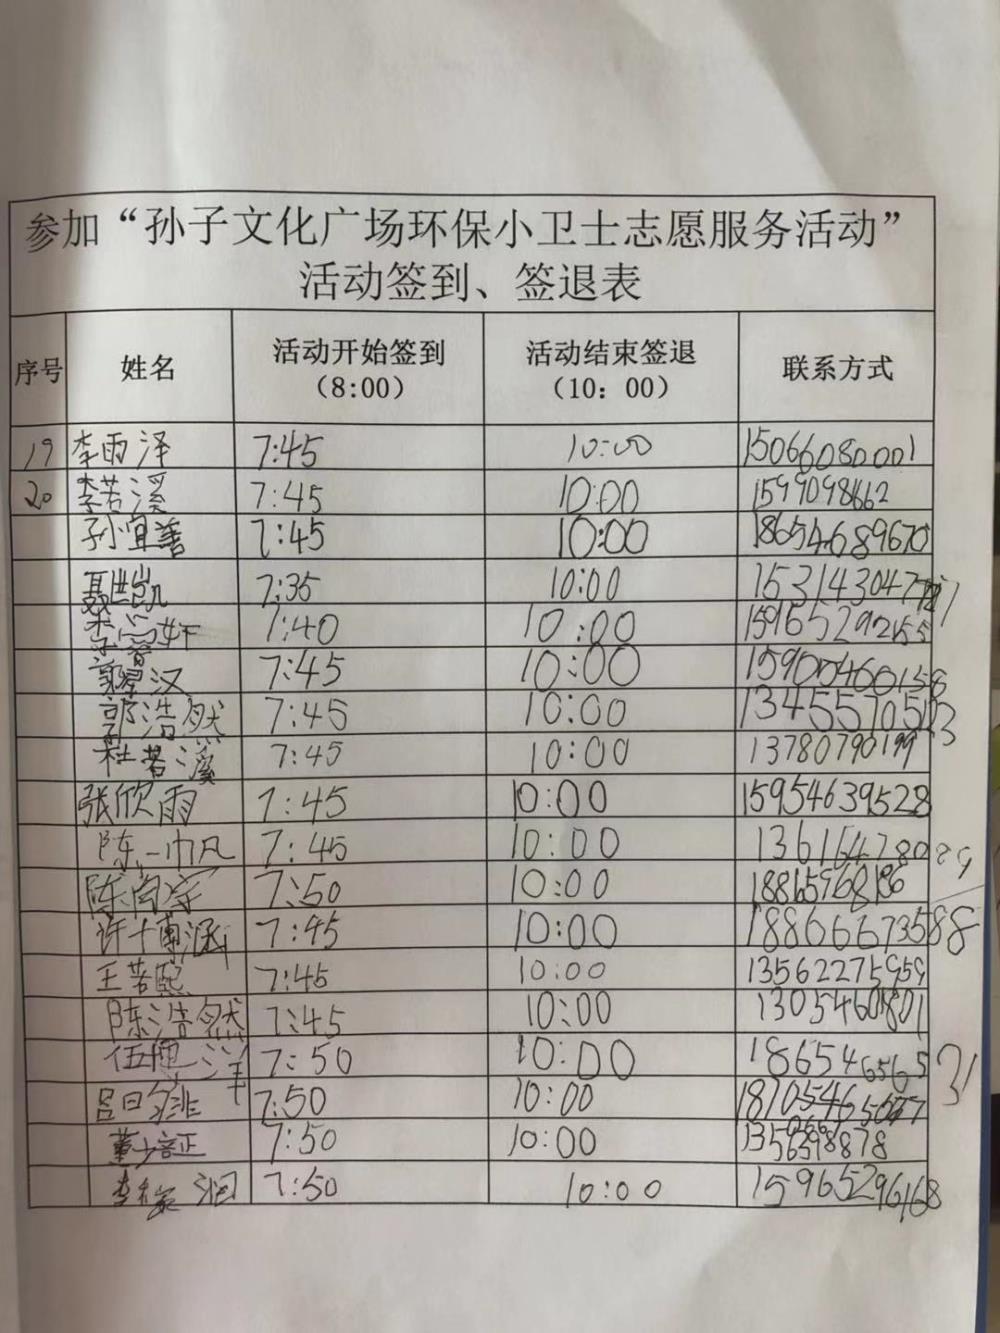 参加“孙子文化广场环保小卫士志愿服务活动”
活动签到、签退表
序号 姓名 活动开始签到（8:00） 活动结束签退（10：00） 联系方式
19 李雨泽 7:45 10:00 15066080001
20 李若溪 7:45 10:00 1599098662
孙宜善 7:45 10:00 18654689670
聂世凯 7:35 10:00
7:40 10:00 15965292155
郭星汉 7:45 10:00 15900460158
郭浩然 7:45 10:00
杜若溪 7:45 10:00 13780790199
张欣雨 7:45 10:00 15954639528
陈一帆 7:45 10:00 13616478089
陈 7:50 10:00 18865968186
许博涵 7:45 10:00 18866673588
王若熙 7:45 10:00 13562275959
陈浩然 7:45 10:00 13054601801
伍 洋 7:50 10:00 18654656531
吕 7:50 10:00
董 正 7:50 10:00
李 润 7:50 10:00 15965296168